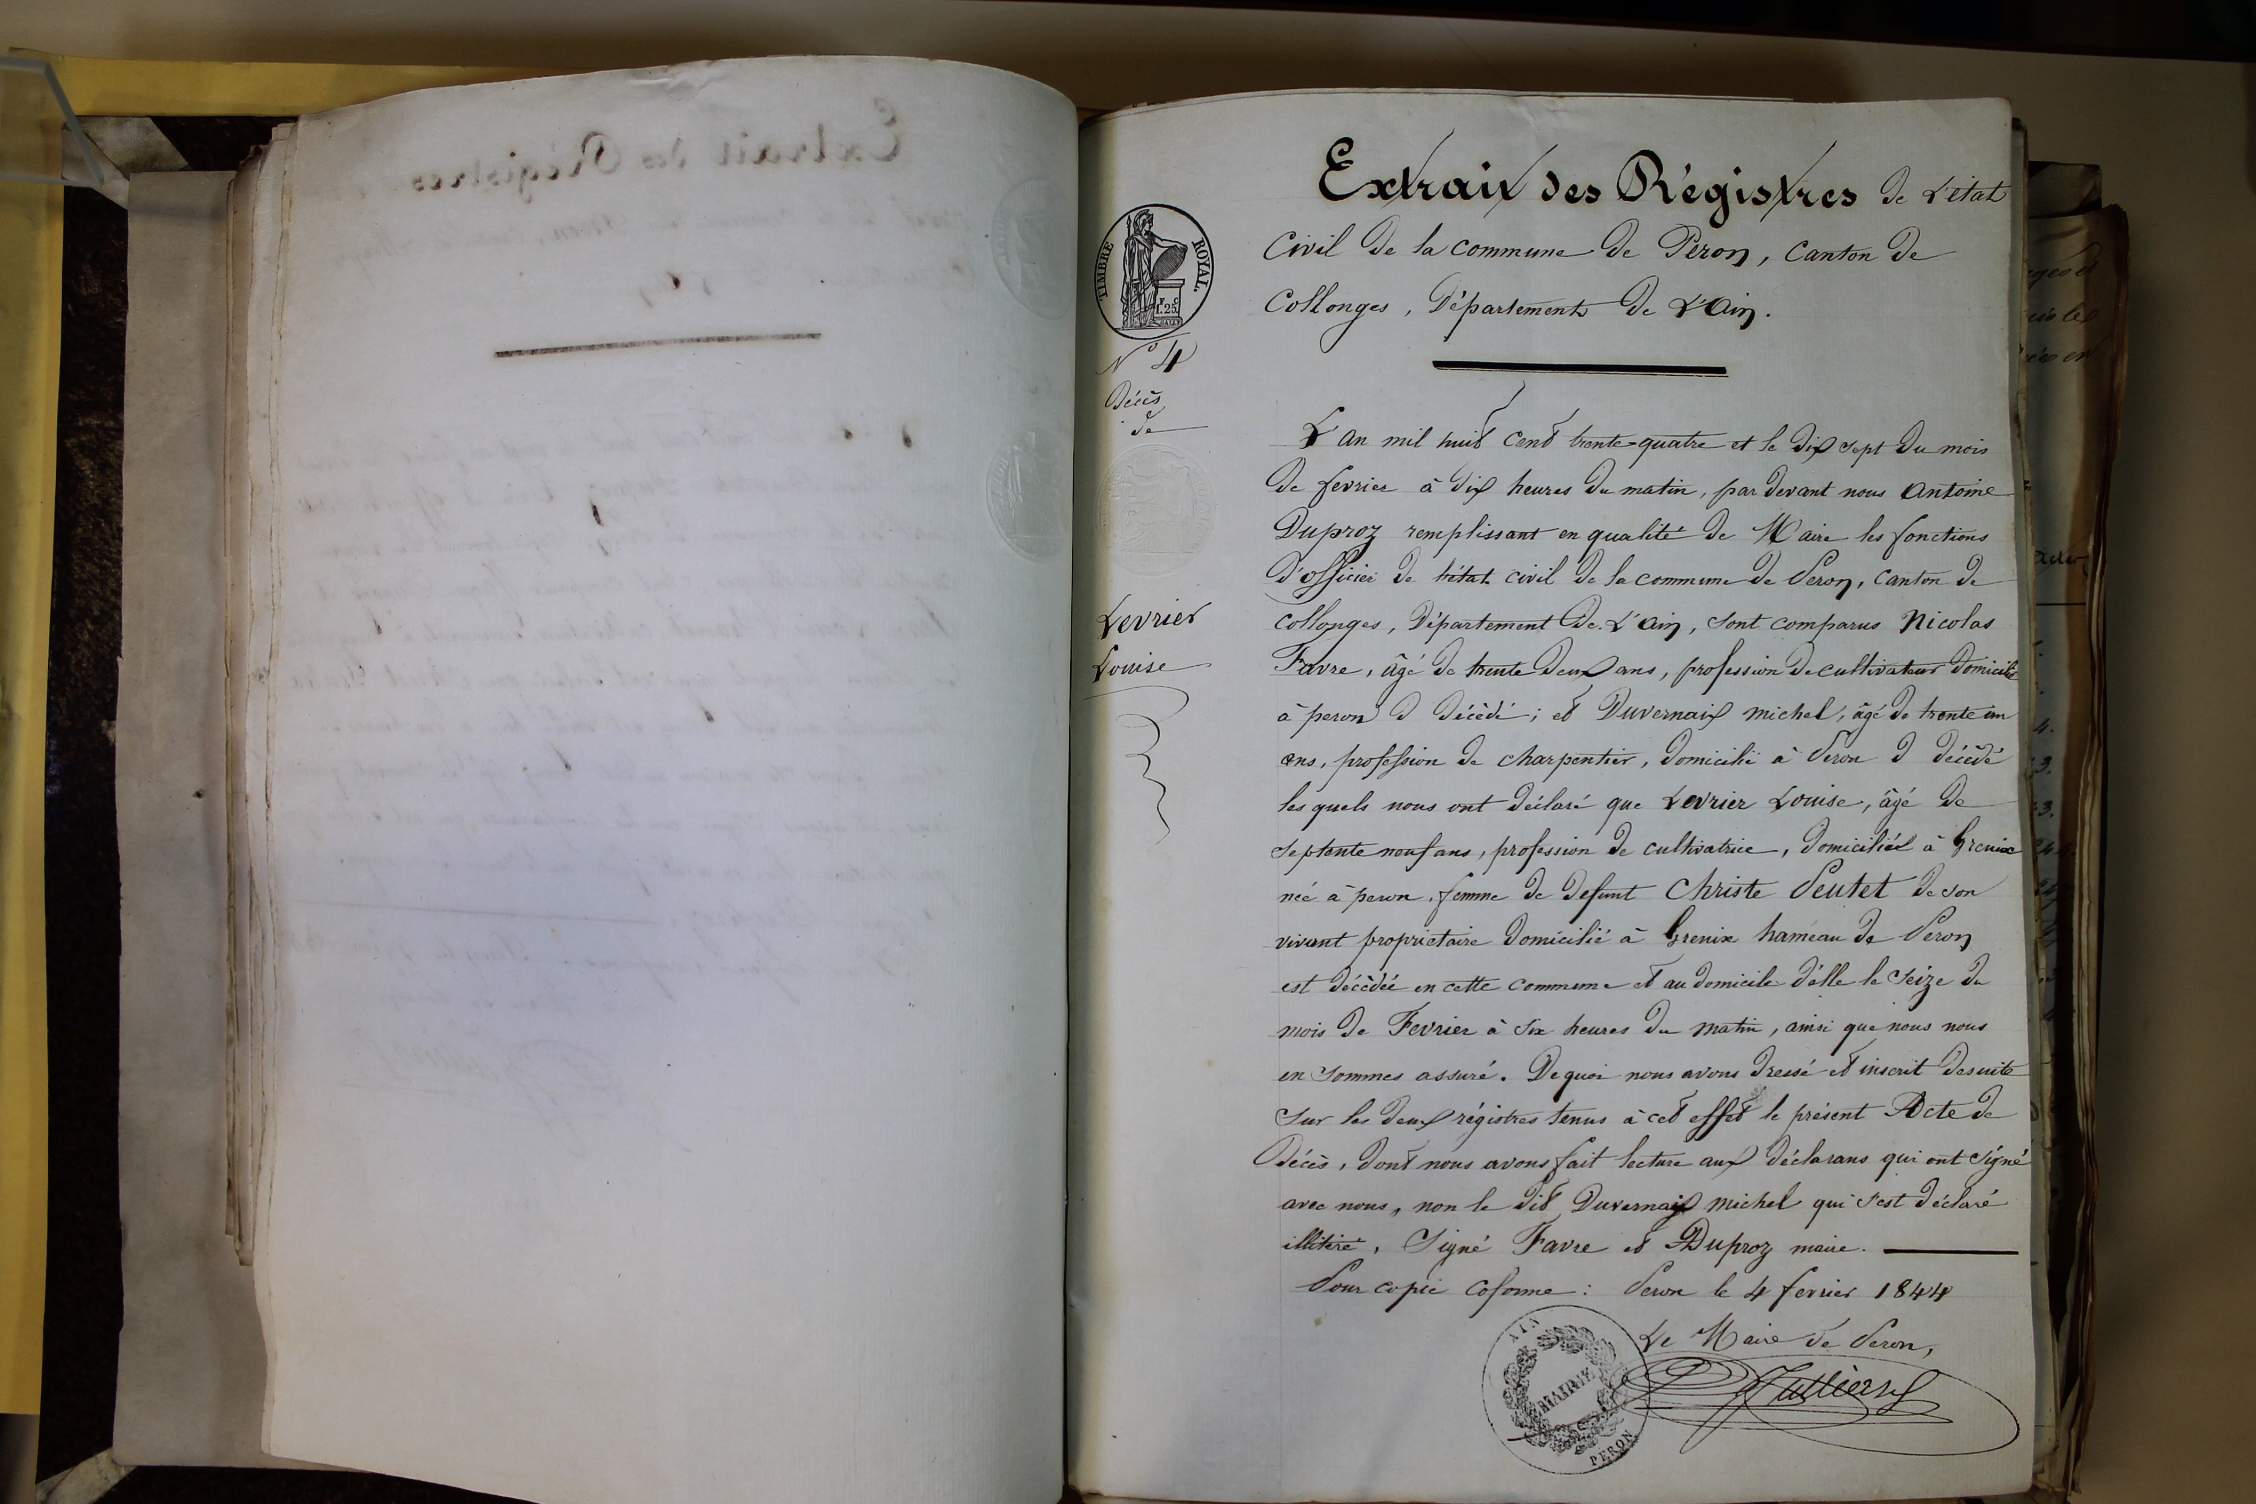 Extrait des Régistres de L'état
Civil de la commune de Péron, Canton de
Collonges, Département de L'Ain.
TIMBRE ROYAL
1.25
N° 4
Décès
de
Levrier
Louise
L'an mil huit cent trente-quatre et le dix sept du mois
de fevrier à dix heures du matin, par devant nous Antoine
Duproz remplissant en qualité de Maire les fonctions
d'officier de l'état civil de la commune de Peron, canton de
Collonges, Département de L'ain, sont comparus Nicolas
Favre, âgé de trente deux ans, profession de cultivateur domicilié
à peron d décèdé; et Duvernaix michel, âgé de trente un
ans, profession de charpentier, domicilié à Peron d décèdé
les quels nous ont déclaré que Levrier Louise, âgé de
septente neuf ans, profession de cultivatrice, domiciliée à Grenix
née à peron, femme de defunt Christe Peutet de son
vivant proprietaire domicilié à Grenix hameau de Peron
est décèdée en cette commune et au domicile d'elle le Seize du
mois de Fevrier à six heures du matin, ainsi que nous nous
en sommes assuré. De quoi nous avons dressé et inscrit desuite
sur les deux régistres tenus à cet effet le présent Acte de
décès, dont nous avons fait lecture aux déclarans qui ont signé
avec nous, non le dit Duvernaix michel qui s'est déclaré
illitéré, Signé Favre et Duproz maire.
Pour copie coforme: Peron le 4 fevrier 1844
Le Maire de Peron,
AIN
MAIRIE
PERON